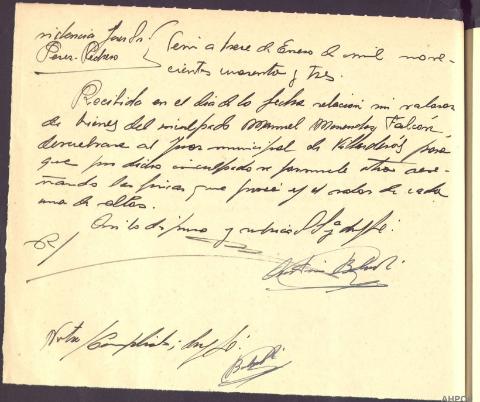 videncia Juez Sr.
Perez-Pedrero
a trece de Enero de mil nove-
cientos cuarenta y tres.
Recibido en el dia de la fecha relación sin valorar
de bienes del inculpado Manuel Menendez Falcón,
devuelvase al Juez municipal de Villardevós para
que por dicho inculpado se formule otra rese-
ñando las fincas que posee y el valor de cada
una de ellas.
Asi lo dispuso y rubrica S.Sª doy fé.
R/
Nota/ Cumplido; doy fé.
AHPOU